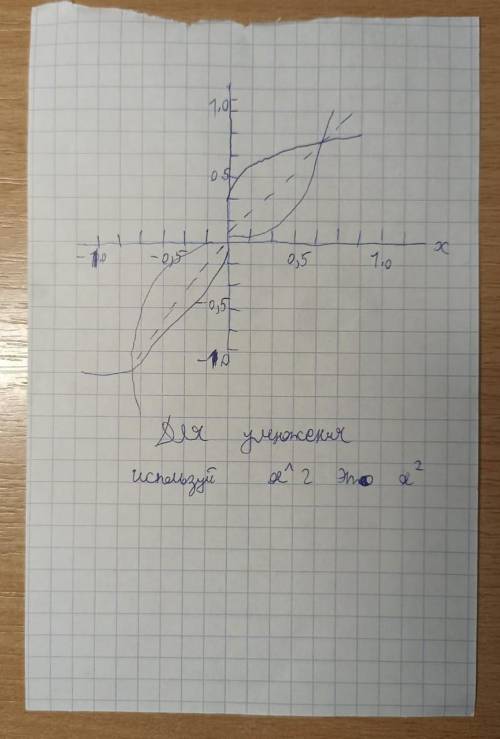 1,0
0,5
-1,0 -0,5 0,5 1,0 x
-0,5
-1,0
Для умножения
используй x^2 Это x²